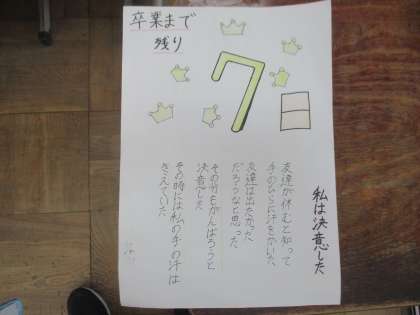 卒業まで
残り
7日
私は決意した
友達が休むと知って
手のひらに汗をかいた
友達は出たかった
だろうなと思った
その分もがんばろうと
決意した
その時には私の手の汗は
きえていた